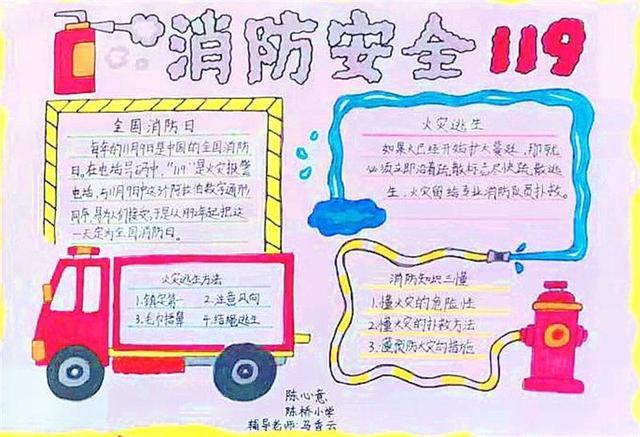 消防安全119
全国消防日
每年的11月9日是中国的全国消防
日。在电话号码中,"119"是火灾报警
电话,与11月9日中这3个阿拉伯数字通形
同序,易为人们接受,于是从1992年起把这
一天定为全国消防日。
火灾逃生
如果火已经开始扩大蔓延,那就
必须立即沿着疏散标志尽快疏散逃
生,火灾留给专业消防队员扑救。
火灾逃生方法
1.镇定第一 2.注意风向
3.毛巾捂鼻 4.结绳逃生
消防知识三懂
1.懂火灾的危险性
2.懂火灾的扑救方法
3.懂预防火灾的措施
陈心意
陈桥小学
辅导老师:马香云